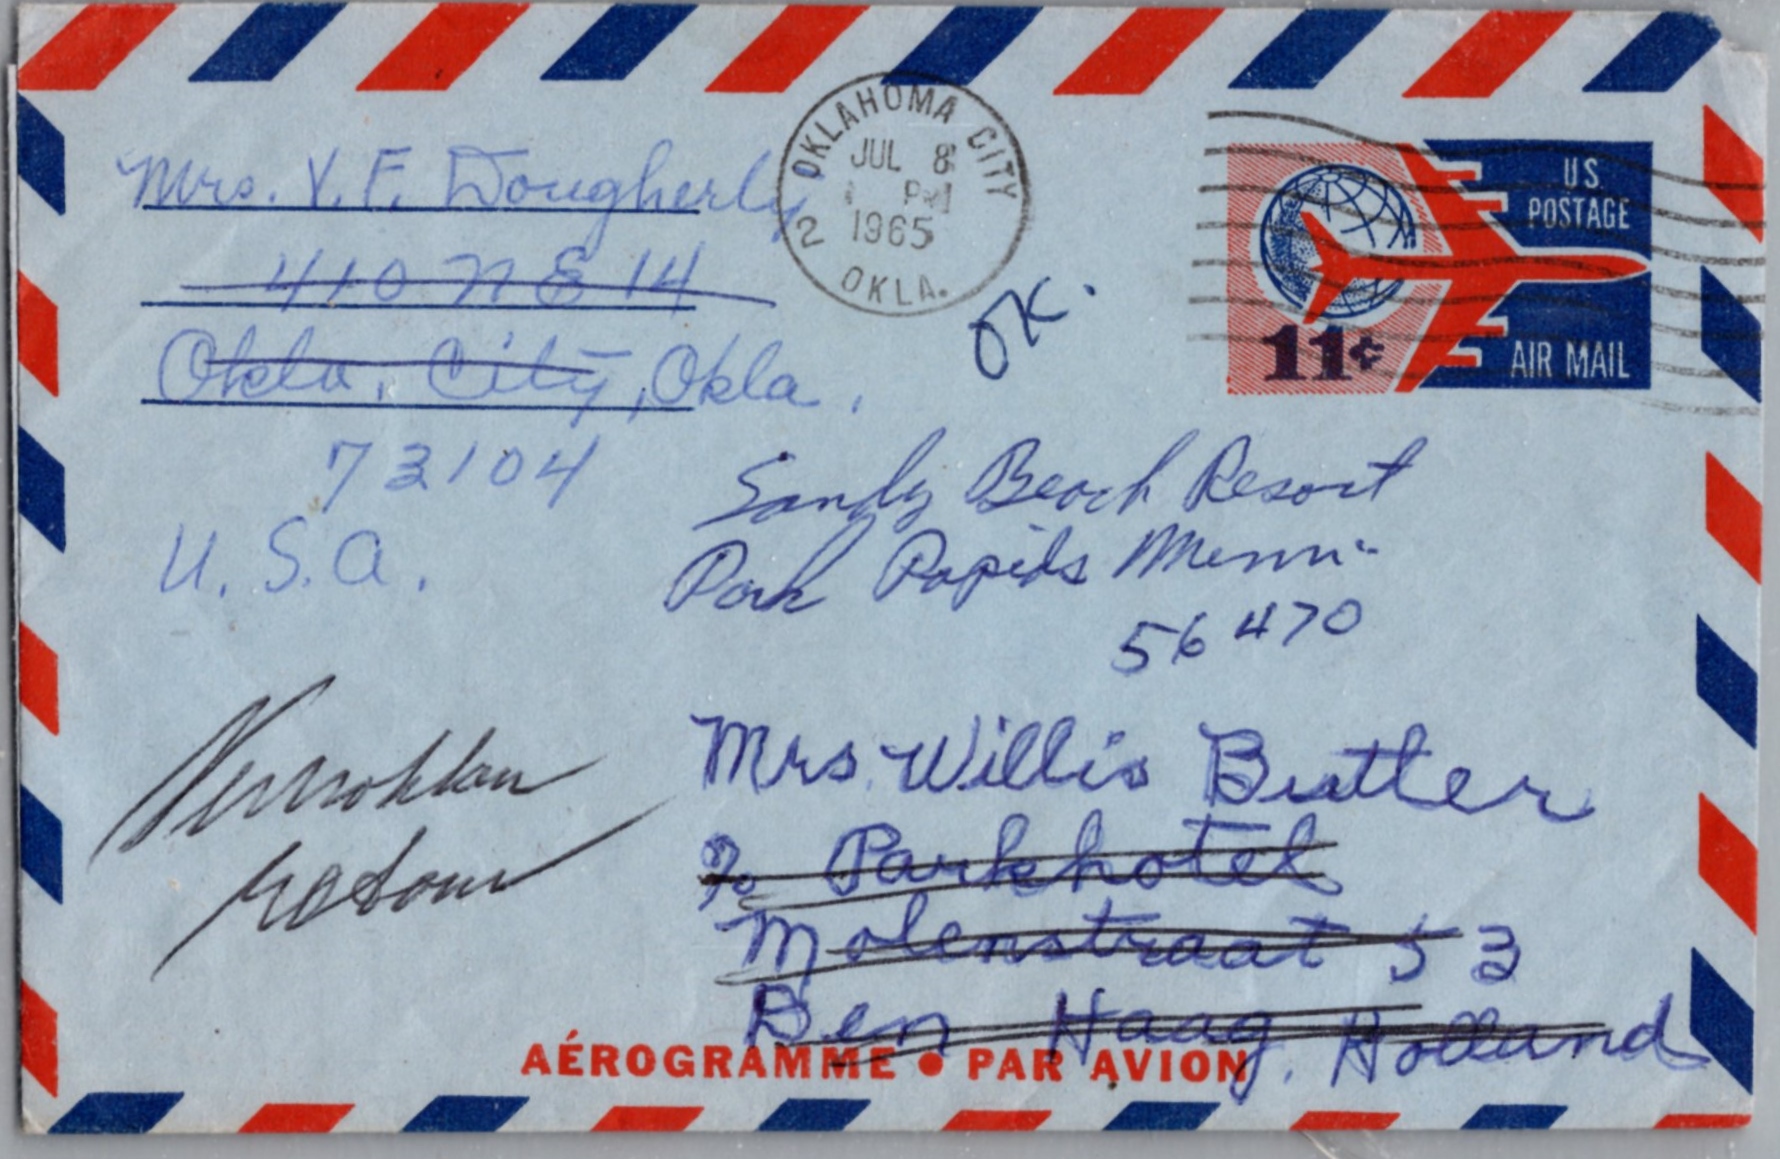 Mrs. V. F. Dougherty
410 N E 14
Okla. City, Okla.
73104
U. S. A.
OKLAHOMA CITY
JUL 8
PM
1965
2
OKLA.
OK.
U S
POSTAGE
11¢
AIR MAIL
Sandy Beach Resort
Park Rapids Minn.
56470
retour
Mrs. Willis Butler
% Parkhotel
Molenstraat 53
Den Haag, Holland
AÉROGRAMME • PAR AVION